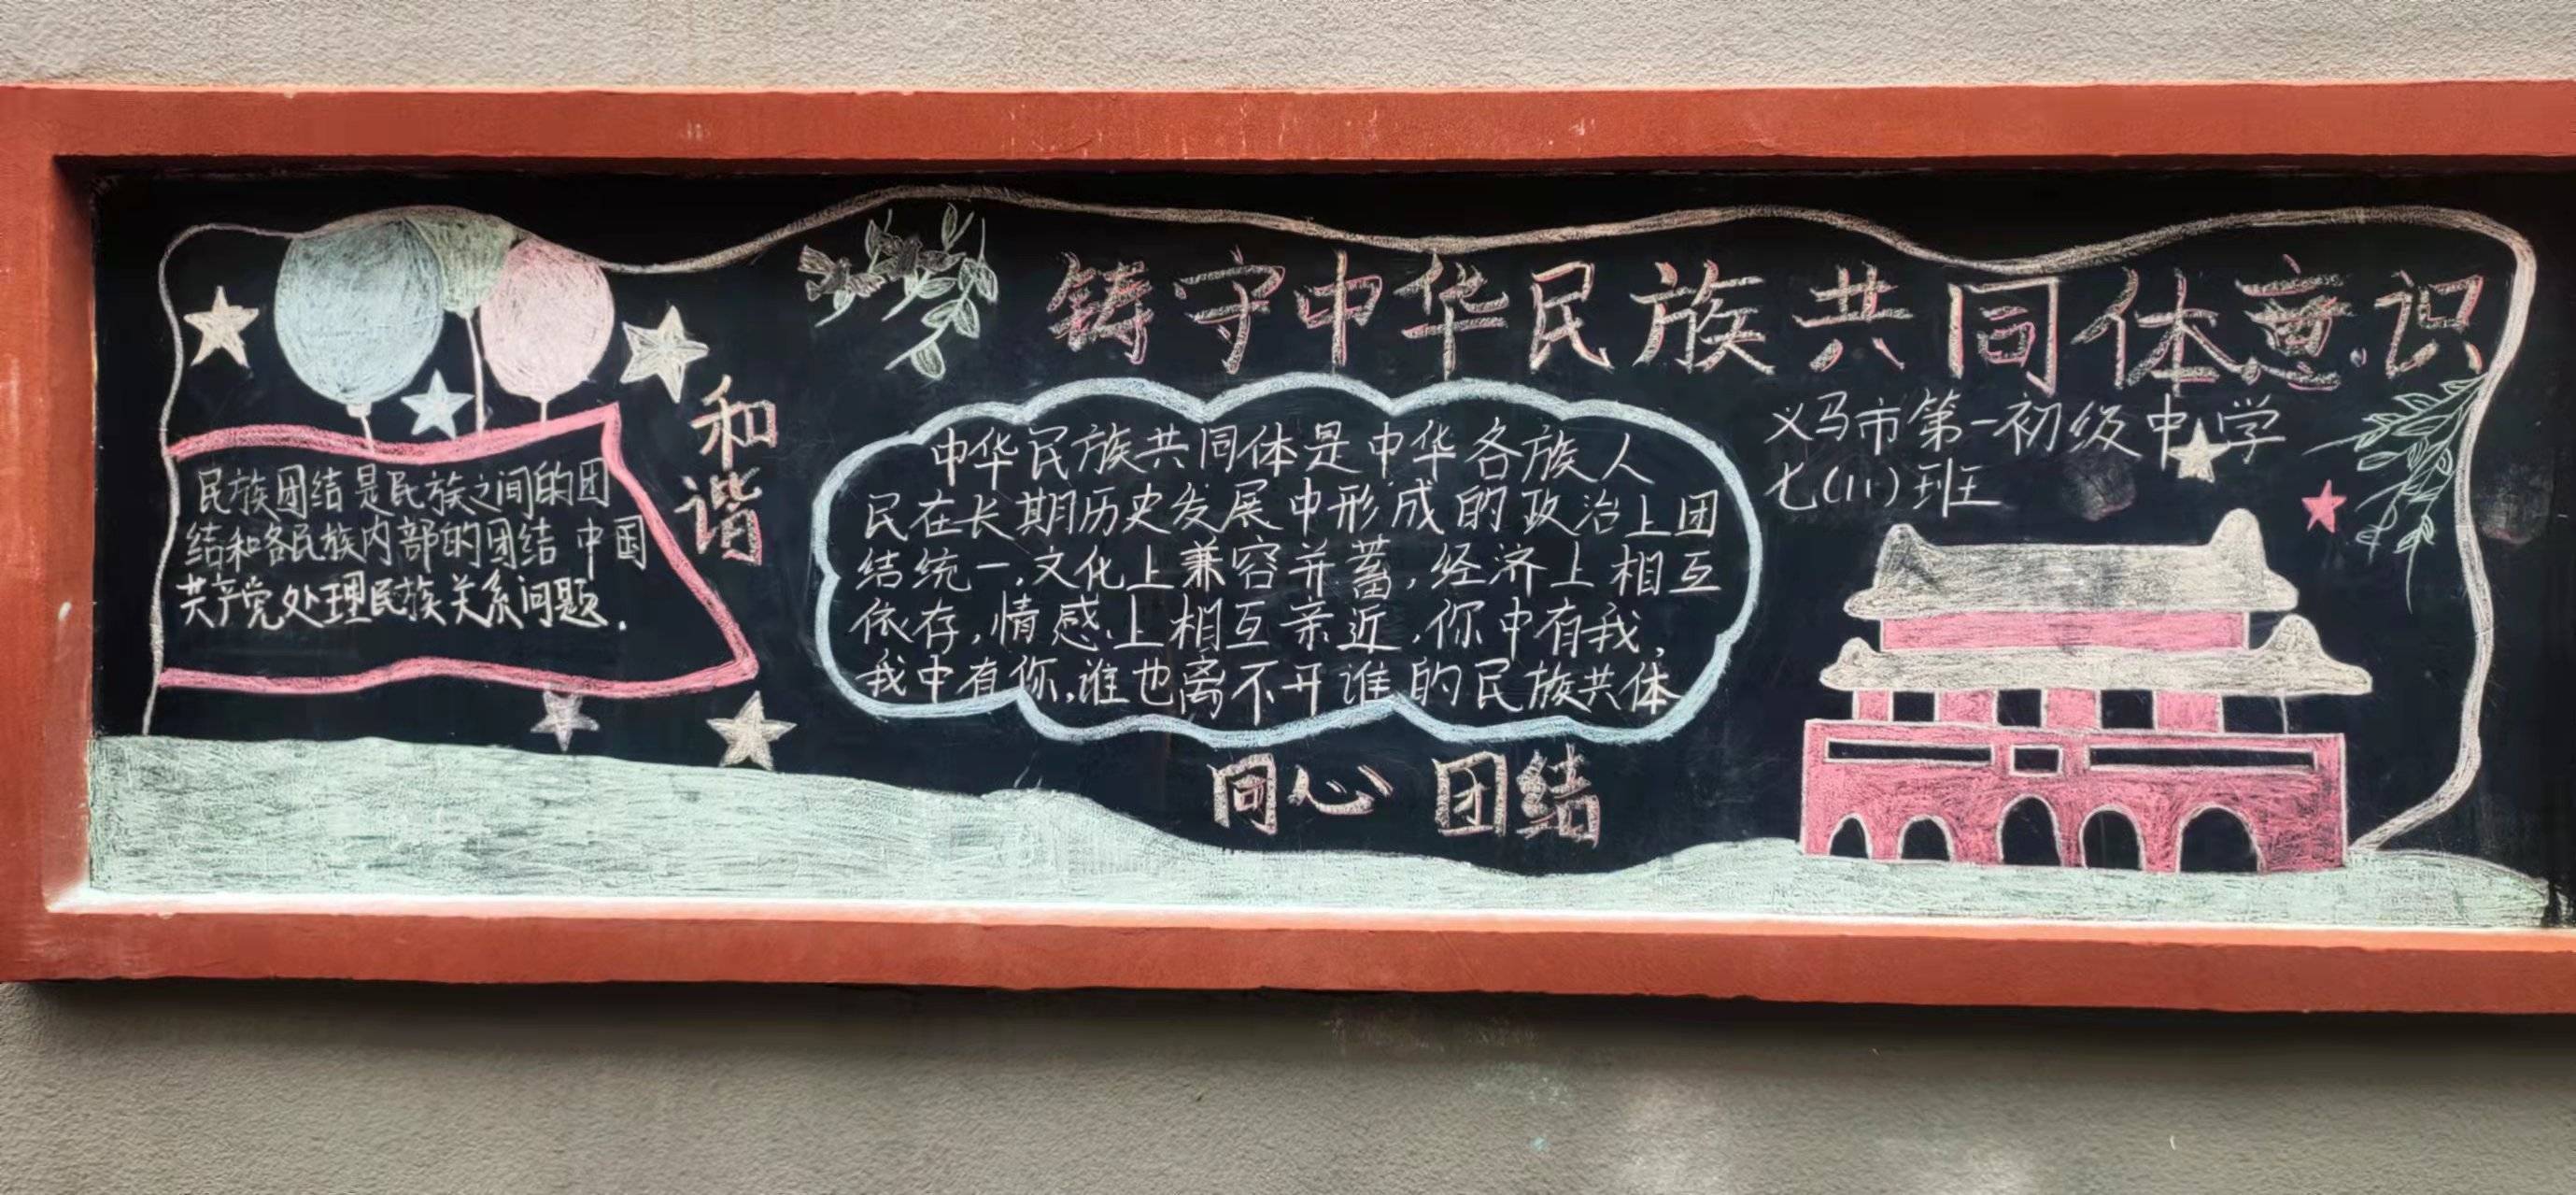 铸守中华民族共同体意识
义马市第一初级中学
七(11)班
和
谐
民族团结是民族之间的团
结和各民族内部的团结 中国
共产党处理民族关系问题.
中华民族共同体是中华各族人
民在长期历史发展中形成的政治上团
结统一,文化上兼容并蓄,经济上相互
依存,情感上相互亲近,你中有我,
我中有你,谁也离不开谁的民族共体
同心 团结